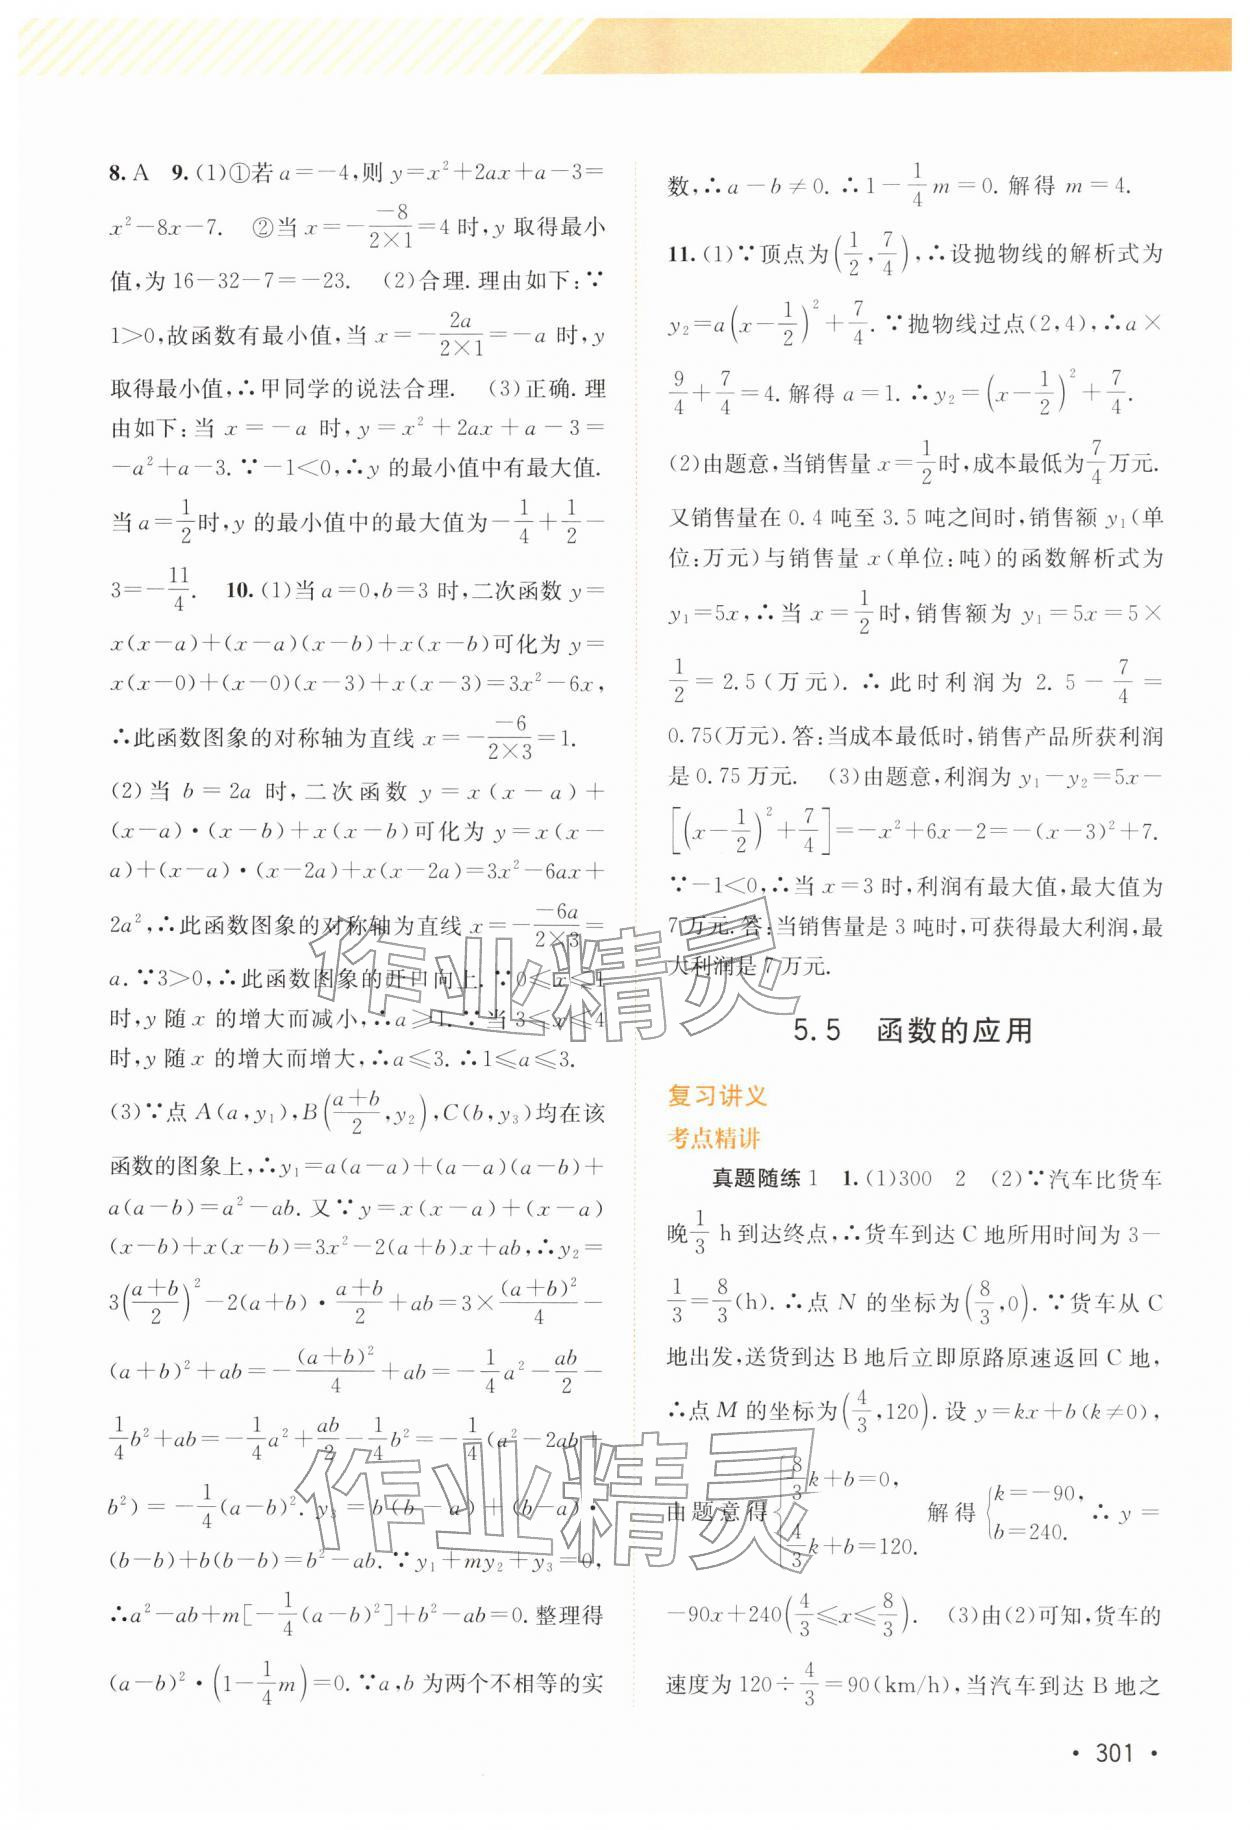 8. A  9. (1)①若 a=-4,则 y=x²+2ax+a-3=
x²-8x-7.  ②当 x=-\frac{-8}{2×1}=4 时,y 取得最小
值,为 16-32-7=-23.  (2)合理.理由如下:∵
1>0,故函数有最小值,当 x=-\frac{2a}{2×1}=-a 时,y
取得最小值,∴甲同学的说法合理.  (3)正确.理
由如下:当 x=-a 时,y=x²+2ax+a-3=
-a²+a-3.∵-1<0,∴y 的最小值中有最大值.
当 a=\frac{1}{2}时,y 的最小值中的最大值为-\frac{1}{4}+\frac{1}{2}-
3=-\frac{11}{4}.  10. (1)当 a=0,b=3 时,二次函数 y=
x(x-a)+(x-a)(x-b)+x(x-b)可化为 y=
x(x-0)+(x-0)(x-3)+x(x-3)=3x²-6x,
∴此函数图象的对称轴为直线 x=-\frac{-6}{2×3}=1.
(2)当 b=2a 时,二次函数 y=x(x-a)+
(x-a)·(x-b)+x(x-b)可化为 y=x(x-
a)+(x-a)·(x-2a)+x(x-2a)=3x²-6ax+
2a²,∴此函数图象的对称轴为直线 x=-\frac{-6a}{2×3}=
a.∵3>0,∴此函数图象的开口向上.∵0≤x≤1
时,y 随 x 的增大而减小,∴a≥1.∵当 3≤x≤4
时,y 随 x 的增大而增大,∴a≤3.∴1≤a≤3.
(3)∵点 A(a,y₁),B(\frac{a+b}{2},y₂),C(b,y₃)均在该
函数的图象上,∴y₁=a(a-a)+(a-a)(a-b)+
a(a-b)=a²-ab.又∵y=x(x-a)+(x-a)
(x-b)+x(x-b)=3x²-2(a+b)x+ab,∴y₂=
3(\frac{a+b}{2})²-2(a+b)·\frac{a+b}{2}+ab=3×\frac{(a+b)²}{4}-
(a+b)²+ab=-\frac{(a+b)²}{4}+ab=-\frac{1}{4}a²-\frac{ab}{2}-
\frac{1}{4}b²+ab=-\frac{1}{4}a²+\frac{ab}{2}-\frac{1}{4}b²=-\frac{1}{4}(a²-2ab+
b²)=-\frac{1}{4}(a-b)².y₃=b(b-a)+(b-a)·
(b-b)+b(b-b)=b²-ab.∵y₁+my₂+y₃=0,
∴a²-ab+m[-\frac{1}{4}(a-b)²]+b²-ab=0.整理得
(a-b)²·(1-\frac{1}{4}m)=0.∵a,b 为两个不相等的实
数,∴a-b≠0.∴1-\frac{1}{4}m=0.解得 m=4.
11. (1)∵顶点为(\frac{1}{2},\frac{7}{4}),∴设抛物线的解析式为
y₂=a(x-\frac{1}{2})²+\frac{7}{4}.∵抛物线过点(2,4),∴a×
\frac{9}{4}+\frac{7}{4}=4.解得 a=1.∴y₂=(x-\frac{1}{2})²+\frac{7}{4}.
(2)由题意,当销售量 x=\frac{1}{2}时,成本最低为\frac{7}{4}万元.
又销售量在 0.4 吨至 3.5 吨之间时,销售额 y₁(单
位:万元)与销售量 x(单位:吨)的函数解析式为
y₁=5x,∴当 x=\frac{1}{2}时,销售额为 y₁=5x=5×
\frac{1}{2}=2.5(万元).∴此时利润为 2.5-\frac{7}{4}=
0.75(万元).答:当成本最低时,销售产品所获利润
是 0.75 万元.  (3)由题意,利润为 y₁-y₂=5x-
[(x-\frac{1}{2})²+\frac{7}{4}]=-x²+6x-2=-(x-3)²+7.
∵-1<0,∴当 x=3 时,利润有最大值,最大值为
7 万元.答:当销售量是 3 吨时,可获得最大利润,最
大利润是 7 万元.
5.5 函数的应用
复习讲义
考点精讲
真题随练 1  1. (1)300  2  (2)∵汽车比货车
晚\frac{1}{3} h 到达终点,∴货车到达 C 地所用时间为 3-
\frac{1}{3}=\frac{8}{3}(h).∴点 N 的坐标为(\frac{8}{3},0).∵货车从 C
地出发,送货到达 B 地后立即原路原速返回 C 地,
∴点 M 的坐标为(\frac{4}{3},120).设 y=kx+b(k≠0),
由题意得{\frac{8}{3}k+b=0, \frac{4}{3}k+b=120.  解得{k=-90, b=240.  ∴y=
-90x+240(\frac{4}{3}≤x≤\frac{8}{3}).  (3)由(2)可知,货车的
速度为 120÷\frac{4}{3}=90(km/h),当汽车到达 B 地之
作业精灵
作业精灵
· 301 ·